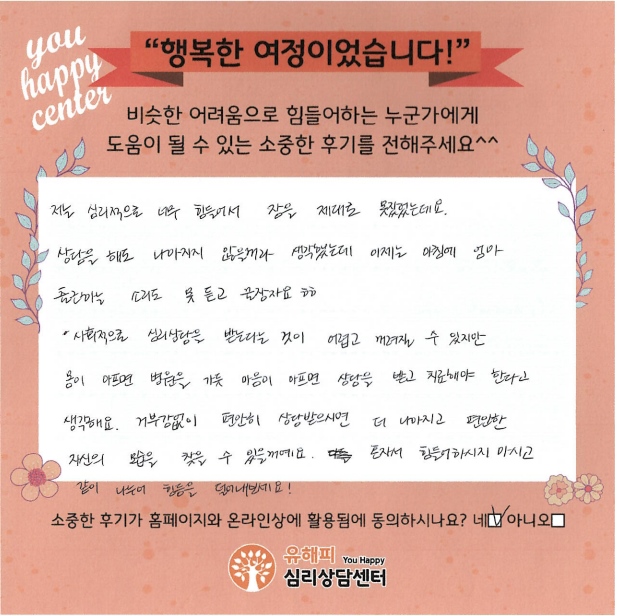 you
happy
center
“행복한 여정이었습니다!”
비슷한 어려움으로 힘들어하는 누군가에게
도움이 될 수 있는 소중한 후기를 전해주세요^^
저는 심리적으로 너무 힘들어서 잠을 제대로 못잤었는데요.
상담을 해도 나아지지 않을꺼라 생각했는데 이제는 아침에 엄마
출근하는 소리도 못 듣고 꿀잠자요 ㅎㅎ
사회적으로 심리상담을 받는다는 것이 어렵고 꺼려질 수 있지만
몸이 아프면 병원을 가듯 마음이 아프면 상담을 받고 치료해야 한다고
생각해요. 거부감없이 편안히 상담받으시면 더 나아지고 편안한
자신의 모습을 찾을 수 있을꺼예요. 혼자서 힘들어하시지 마시고
같이 나누어 힘듬을 덜어내보세요!
소중한 후기가 홈페이지와 온라인상에 활용됨에 동의하시나요? 네 아니오
유해피 You Happy
심리상담센터